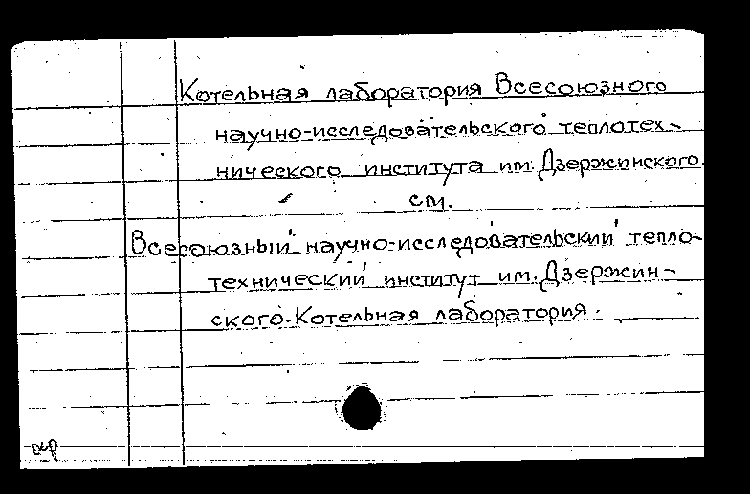 Котельная лаборатория Всесоюзного
научно-исследовательского теплотех-
нического института им. Дзержинского.
см.
Всесоюзный научно-исследовательский тепло-
технический институт им. Дзержин-
ского. Котельная лаборатория.